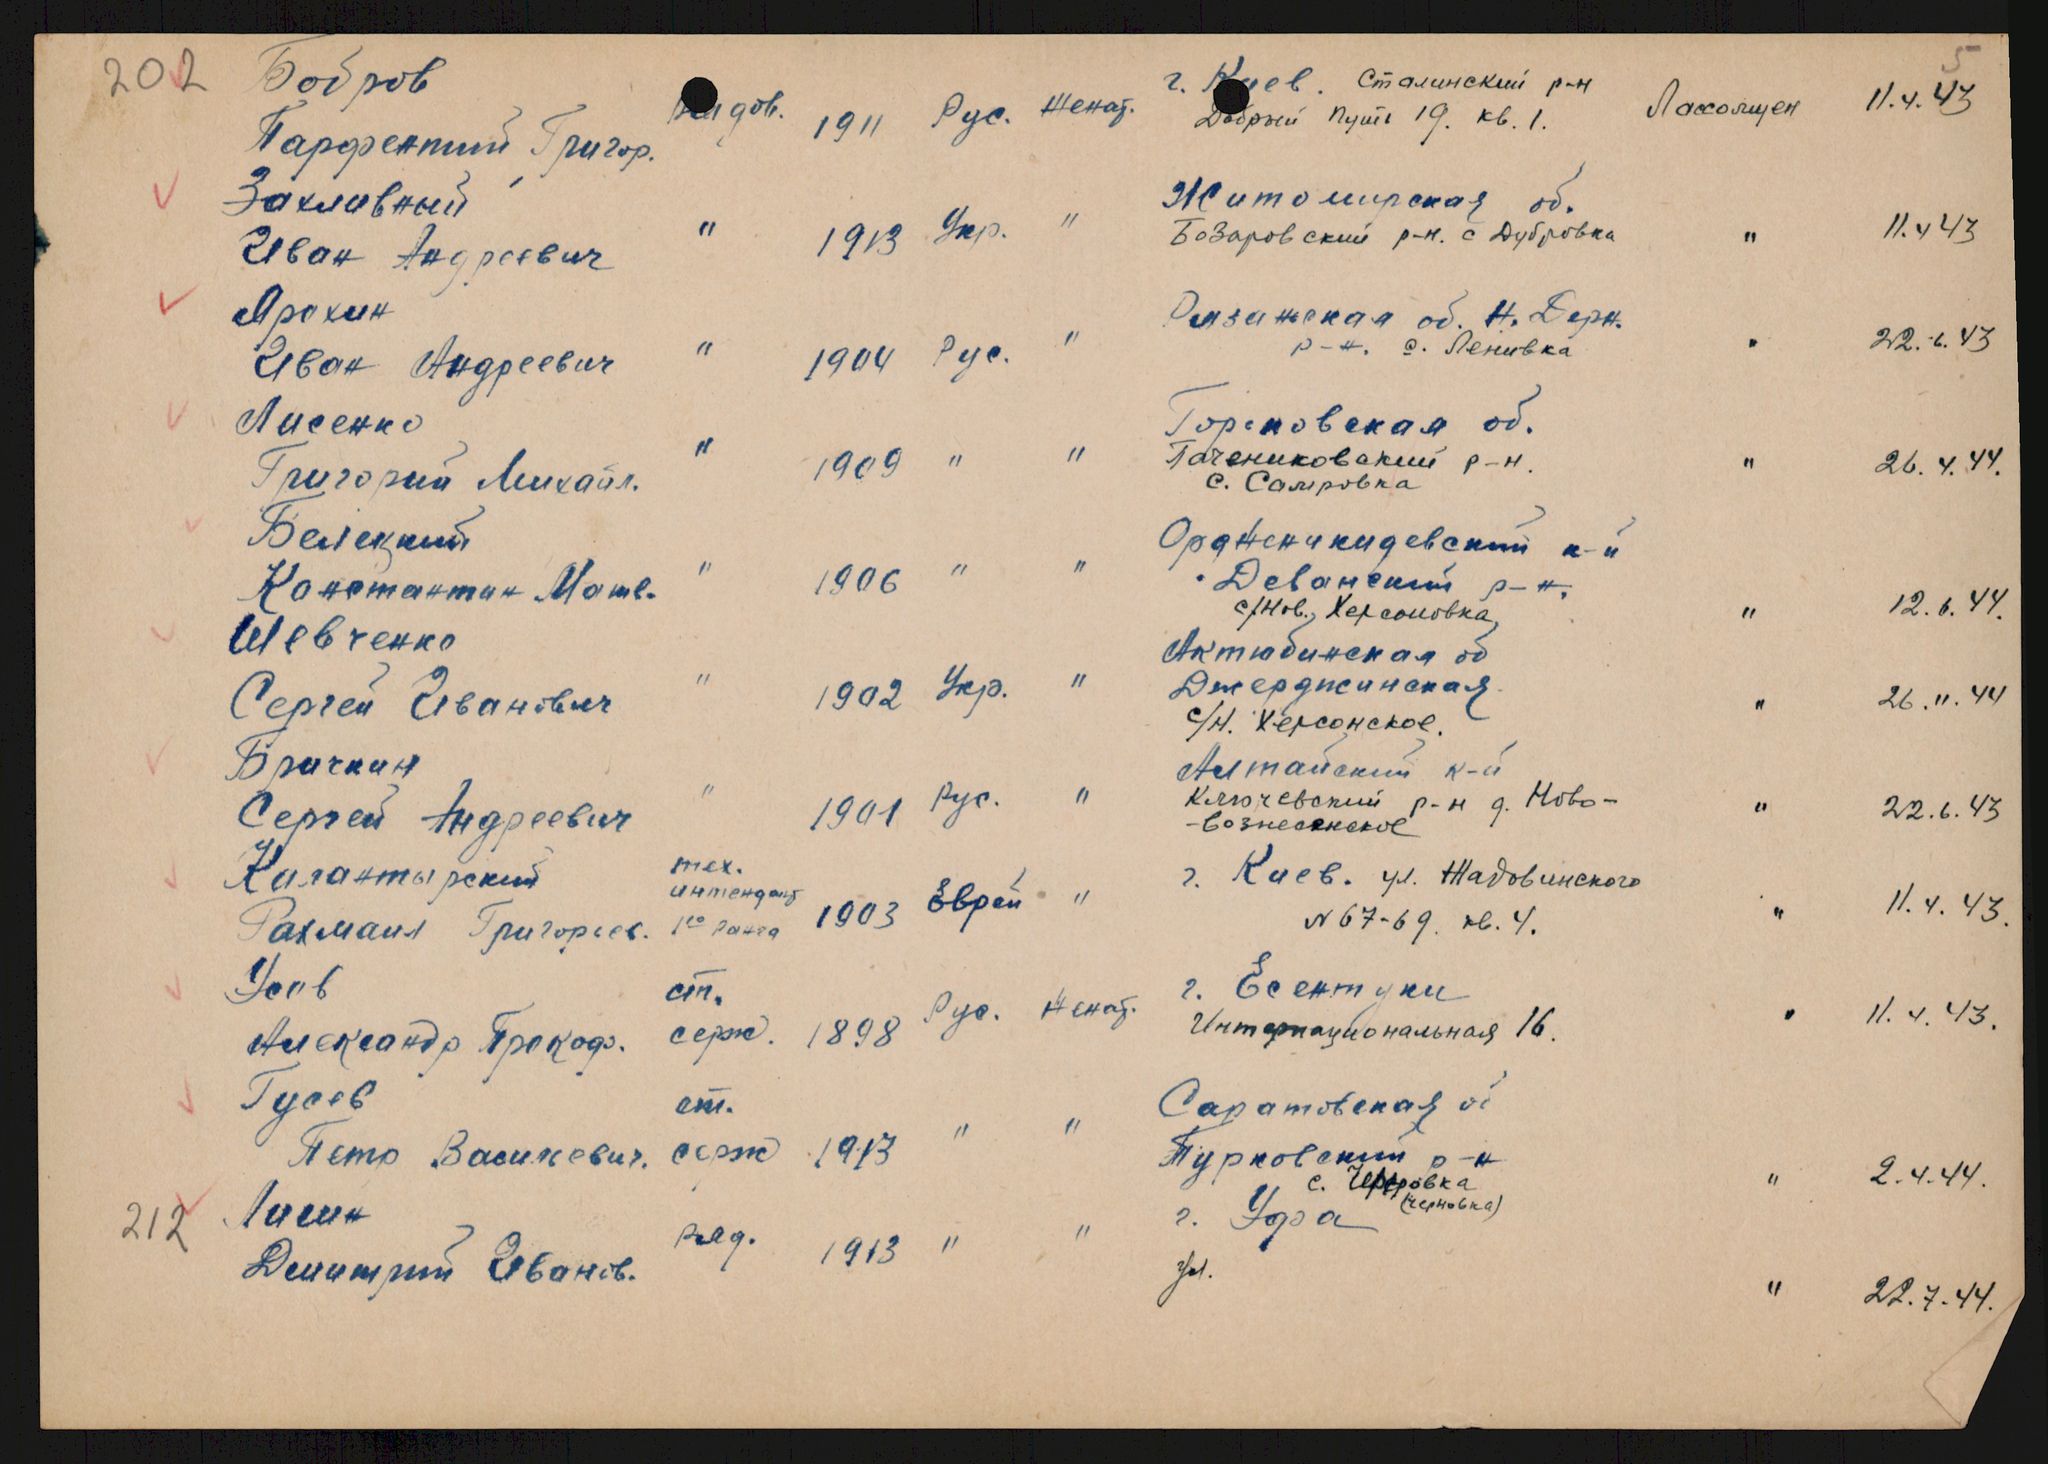 5
202 Бобров г. Киев. Сталинский р-н
Парфентий Григор. рядов. 1911 Рус. Женат. Добрый Путь 19. кв. 1. 11.4.43
Захливный Житомирская об.
Иван Андреевич " 1913 Укр. " Базаровский р-н. с Дубровка " 11.4 43
Ярохин Рязанская об. Н. Дерн.
Иван Андреевич " 1904 Рус. " р-н. с. Ленивка " 22.6.43
Лисенко об.
Григорий Михайл. " 1909 " " р-н. " 26.4.44.
с.
Белецкий к-й
Константин Матв. " 1906 " " р-н.
с/Нов. Херсоновка " 12.6.44.
Шевченко Актюбинская об
Сергей Иванович " 1902 Укр. " Джерджинская
с/н. Херсонское. " 26.11.44
Бричкин Алтайский к-й
Сергей Андреевич " 1901 Рус. " Ключевский р-н д. Ново-
-вознесенское " 22.6.43
Калантырский тех. г. Киев. ул. Жадовинского
интендант
Рахмаил Григорьев. 1го ранга 1903 Еврей " N 67-69. кв. 4. " 11.4.43.
Усов ст. г. Есентуки
Александр Прокоф. серж. 1898 Рус. Женат. Интернациональная 16. " 11.4.43.
Гусев ст. Саратовская об
Петр Василевич. серж 1913 " " Турковский р-н
с. (Черновка) " 2.4.44.
212 Лисин г. Уфа
Дмитрий Иванов. ряд. 1913 " " ул. " 22.7.44.